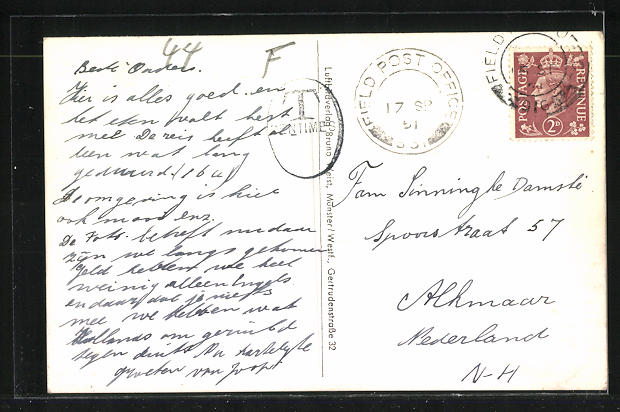 44 F
Beste Ouders.
Hier is alles goed en
het eten valt best
mee De reis heeft al
een wat lang
geduurd (16 u)
De omgeving is hier
ook mooi enz.
De Foto betreft
zijn we langs gekomen
Geld hebben we heel
weinig alleen Engels
en daar dat je niets
mee we hebben wat
Hollands om geruild
tegen duits Nu hartelijke
groeten van Joop
T
CENTIMES
Luftbildverlag Bruno Münster/Westf., Gertrudenstraße 32
FIELD POST OFFICE
17 SP
51
FIELD
POSTAGE REVENUE
2D
Fam Sinninghe Damsté
Spoorstraat 57
Alkmaar
Nederland
N-H